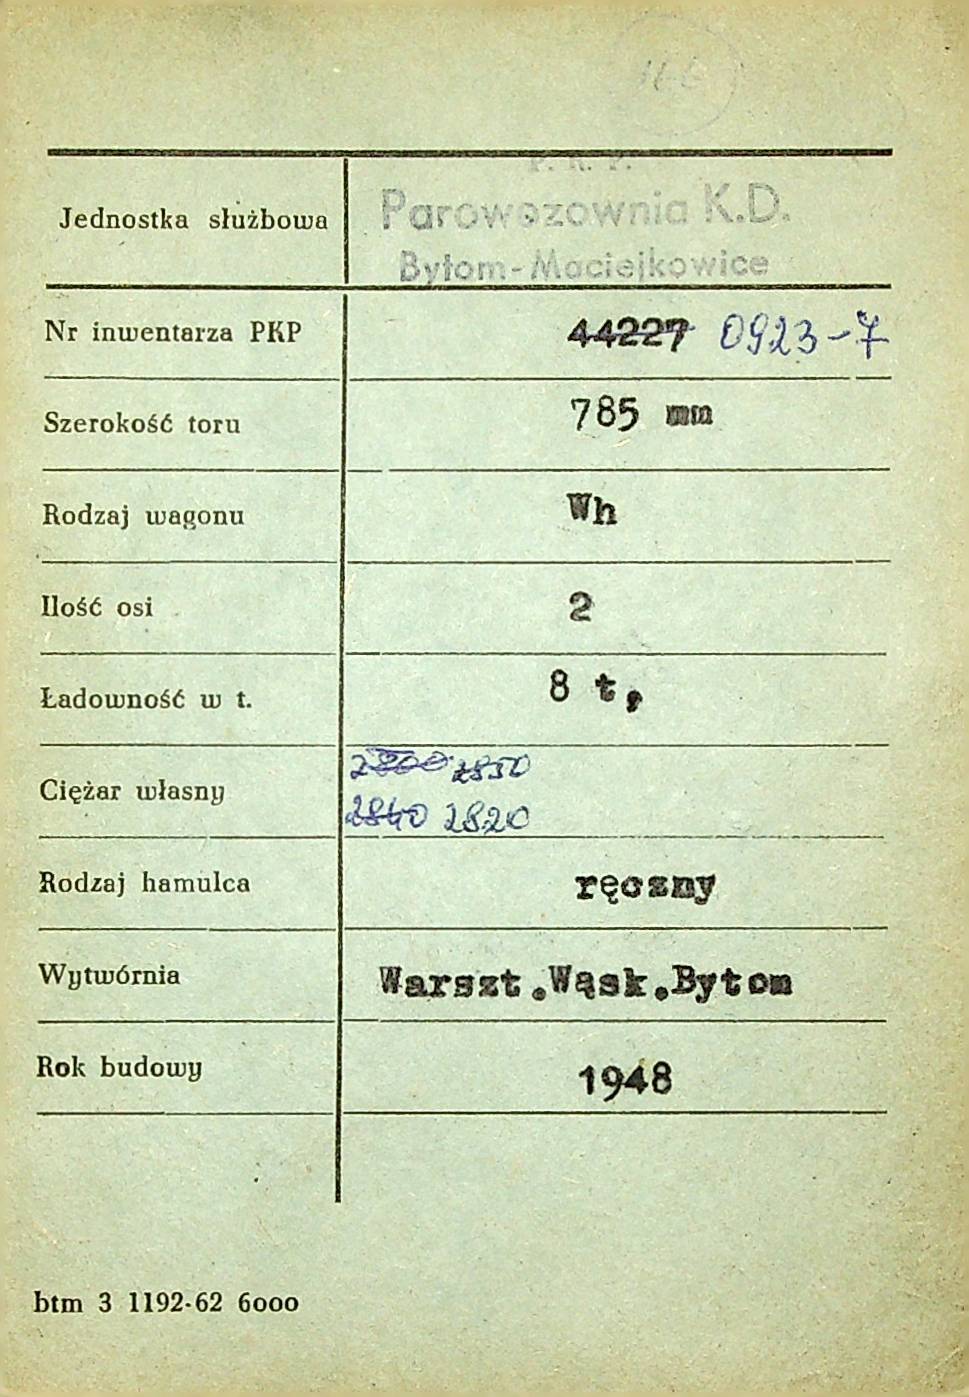 P. K. P.
Jednostka służbowa Parowozownia K.D.
Bytom-Maciejkowice
Nr inwentarza PKP 44227 0923-7
Szerokość toru 785 mm
Rodzaj wagonu Wh
Ilość osi 2
Ładowność w t. 8 t,
Ciężar własny 2800 2850
2840 2820
Rodzaj hamulca ręczny
Wytwórnia Warszt.Wąsk.Bytom
Rok budowy 1948
btm 3 1192-62 6000